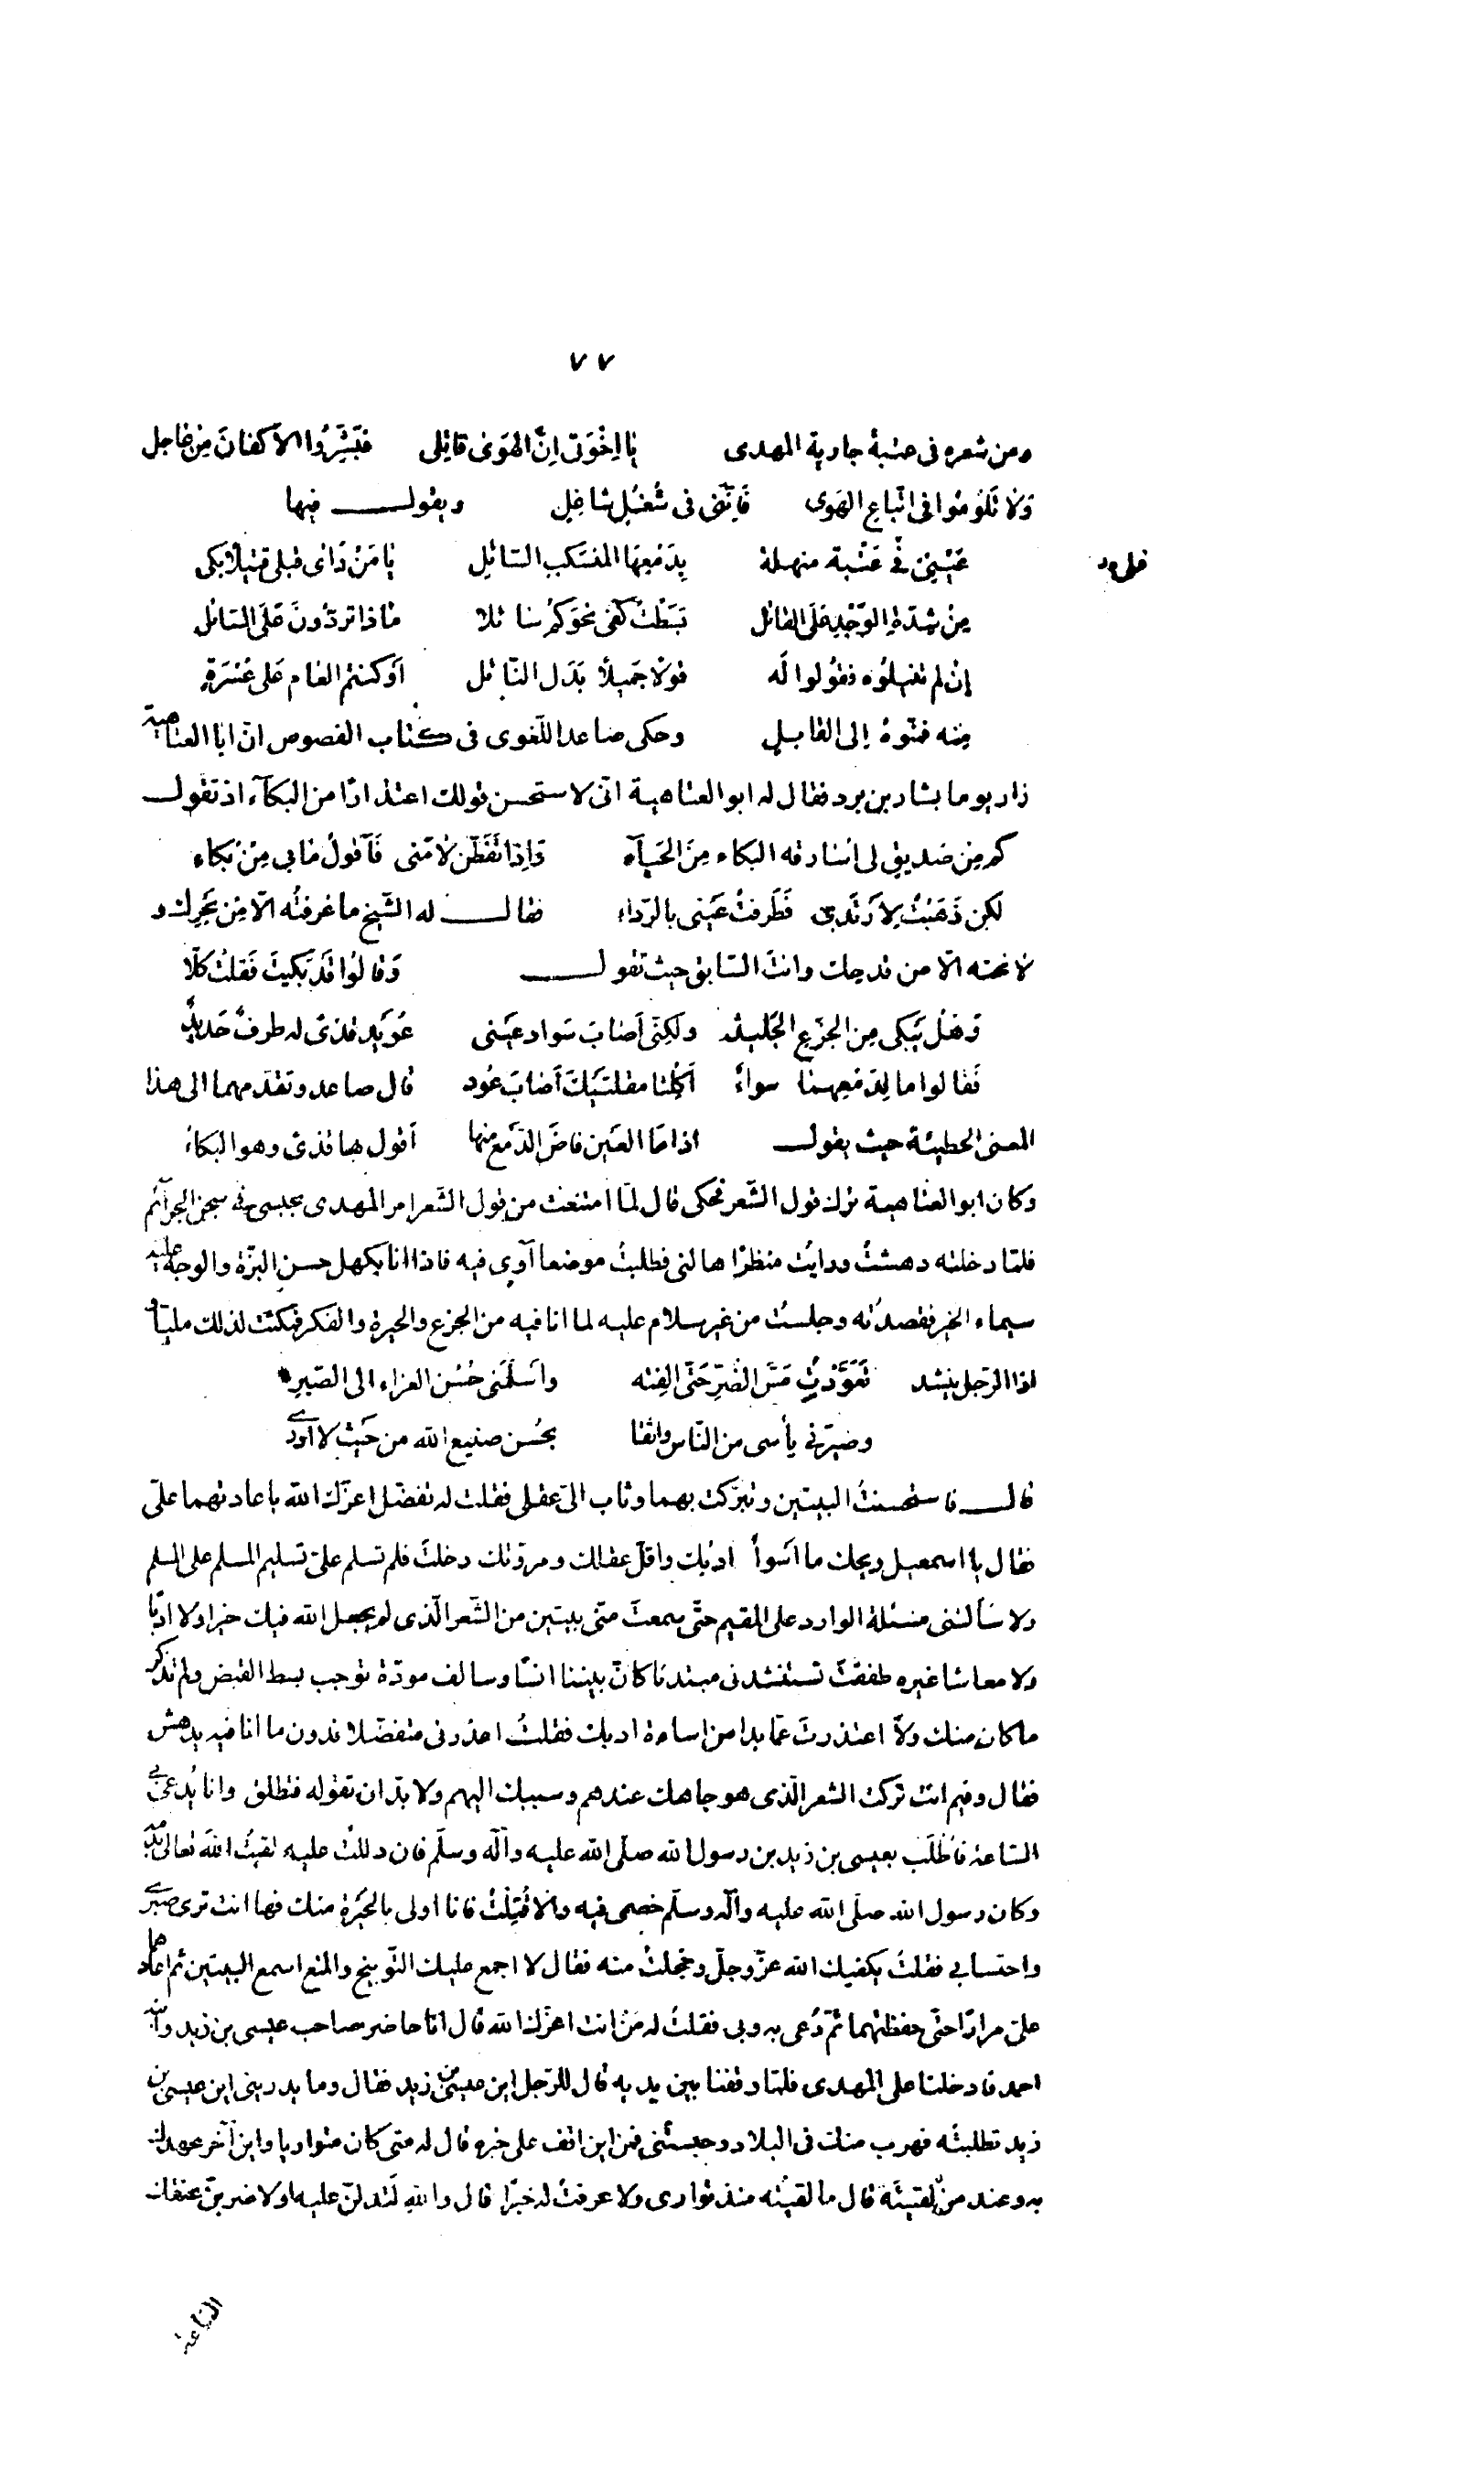 ٧٧
ومن شعره فى عتبة جارية المهدى يا اِخْوَتى اِنَّ الهَوَىٰ قاتِلى فَبَشِّرُوا الاَكفانَ مِن عاجل
وَلا تَلُومُوا فى اتّباعِ الهَوى فَاِنَّنى فى شُغُلٍ شاغِلٍ ويقول فيها
عَيْنِى فى عُتْبة منهلة بِدَمْعِهَا المنسَكب السّائِلِ يا مَنْ رَاى قبلى قتيلًا بَكى
قلى ود
مِنْ شِدّةِ الوَجْدِ عَلَى القاتل بَسَطْتُ كَفّى نَحوَكُمْ سائلا ماذا تردّونَ عَلَى السّائل
إنْ لم تنيلُوه فقُولوا لَه قولًا جَميلًا بَدَل النّائل اَوكنتم العام عَلى عُسْرَةٍ
مِنه فمنّوهُ اِلى القابلِ وحكى صاعد اللّغوى فى كتاب الفصوص انّ ابا العتاهية
زار يوما بشار بن برد فقال له ابو العتاهية انّى لاستحسن قولك اعتذارًا من البكآء اذ تقول
كم مِن صَديقٍ لى اسارقه البكاء مِنَ الحَيآء وَاِذا تَفَطّن لامَنى فَآقولُ مابى مِنْ بُكاءِ
لكِن ذَهَبْتُ لِاَرتَدِى فَطَرفتُ عَينى بالرّداء فقال له الشّيخ ما غرفتُه الّا مِن بَحرِك و
لا نحته الّا من قدحك وانتَ السّابق حيث تقول وَقالُوا قَد بَكيتَ فَقلتُ كلّا
وَهَل يَبكى مِن الجزَعِ الجَليد ولكِنّى اَصابَ سَواد عَينى عُوَيد قذىً له طرفٌ حَديدٌ
فَقالوا ما لِدَمعِهِما سواءً اَكِلتا مقلتَيكَ اَصابَ عُود قال صاعد وتقدّمهما الى هذا
المعنى الحطيئة حيث يقول اذا مَا العَين فاضَ الدّمع منها اَقول بها قذىً وهو البكاءُ
وكان ابو العتاهية ترك قول الشّعر فحكى قال لمّا امتنعت من قول الشّعر امر المهدى بحبسى فى سجن الجرآئم
فلمّا دخلته دهشتُ ورايتُ منظرًا هالنى فطلبتُ موضعا آوى فيه فاذا انا بكهل حسن البزّة والوجه عليه
سيماء الخير فقصدتُه وجلستُ من غير سلام عليه لما انا فيه من الجزع والحيرة والفكر فمكثت لذلك مليّا و
اذا الرّجل ينشد تَعَوَّدْتُ مَسّ الضُّرّ حَتّى الفته واَسلَمَنى حُسْن العزاء الى الصّبرِ
وصيّرنى يأسى من النّاس واثقا بحُسن صنيع الله من حَيثُ لا اَدرى
قال فاستحسنتُ البيتين وتبرّكت بهما وثاب الىّ عقلى فقلت له تفضّل اعزّك الله باعادتهما علىّ
فقال يا اسمعيل ويحك ما اَسواَ ادبك واقلّ عقلك ومروّتك دخلتَ فلم تسلم علىّ تسليم المسلم على المسلم
ولا سَألتنى مسئلة الوارد على المقيم حتّى سمعتَ منّى بيتين من الشّعر الّذى لم يجعل الله فيك خيرا ولا ادبًا
ولا معاشا غيره طفقتَ تستنشدنى مبتدئا كانّ بيننا انسًا وسالف مودّة توجب بسط القبض ولم تذكر
ما كان منك ولا اعتذرتَ عمّا بدا من اساءة ادبك فقلتُ اعذرنى متفضّلا فدون ما انا فيه يدهش
فقال وفيم انت تركت الشعر الّذى هو جاهك عندهم وسببك اليهم ولا بدّ ان تقوله فتطلق وانا يُدعى بى
السّاعة فاُطلَب بعيسى بن زيد بن رسول الله صلّى الله عليه وآله وسلّم فان دللتُ عليه لقيتُ الله تعالى بدمه
وكان رسول الله صلّى الله عليه وآله وسلّم خصمى فيه والّا قُتِلْتُ فانا اولى بالحَيرة منك فها انت ترى صبرى
واحتسابى فقلتُ يكفيك الله عزّ وجلّ وخجلتُ منه فقال لا اجمع عليك التّوبيخ والمنع اسمع البيتين ثم اعادهما
علىّ مرارًا حتّى حفظتهما ثمّ دُعى به وبى فقلتُ له مَن انت اعزّك الله قال انا حاضر صاحب عيسى بن زيد وابنه
احمد فادخلنا على المهدى فلمّا وقفنا بين يديه قال للرّجل اين عيسى بن زيد فقال وما يدرينى اين عيسى بن
زيد تطلبتُه فهرب منك فى البلاد وحبستَنى فمن اين اقف على خبره قال له متى كان متواريا واين آخر عهدك
به وعند من لقيتَه قال ما لقيتُه منذ توارى ولا عرفتُ له خبرًا قال والله لَتدلنّ عليه او لاضربنّ عنقك
السّاعة